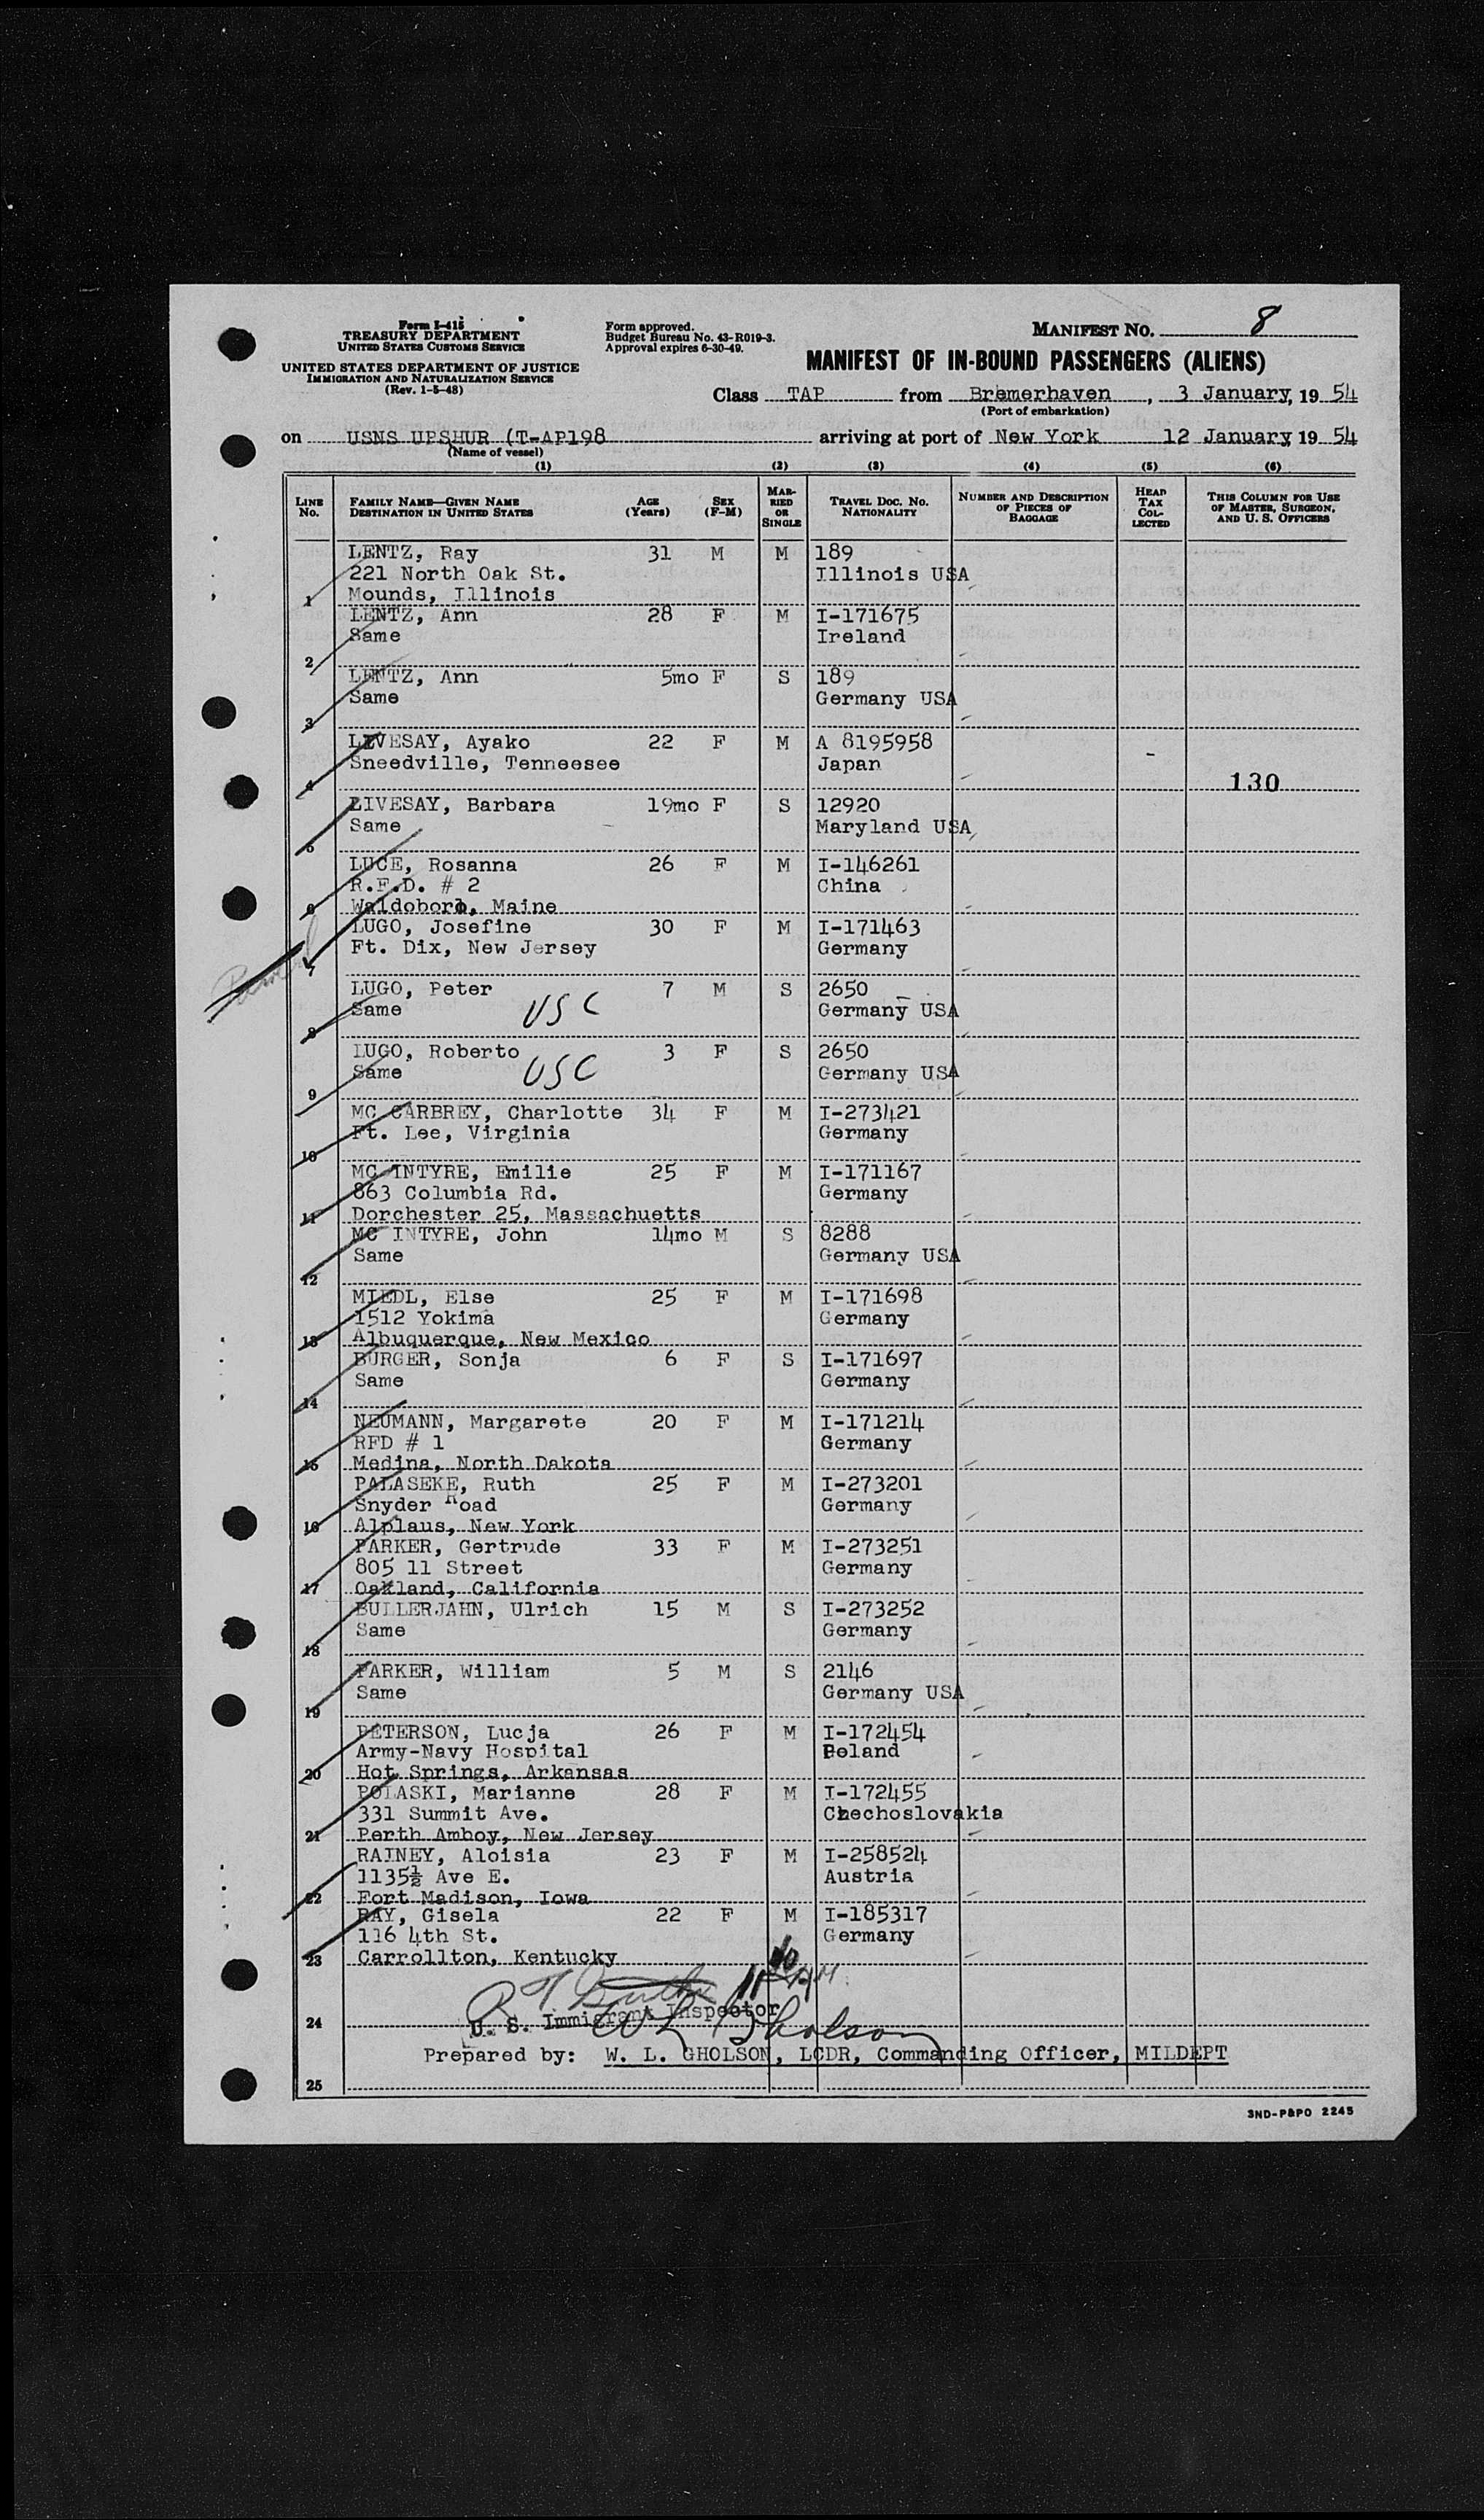 Form I-415
TREASURY DEPARTMENT
UNITED STATES CUSTOMS SERVICE
UNITED STATES DEPARTMENT OF JUSTICE
IMMIGRATION AND NATURALIZATION SERVICE
(Rev. 1-5-48)
Form approved.
Budget Bureau No. 43-R019-3.
Approval expires 6-30-49.
MANIFEST NO. 8
MANIFEST OF IN-BOUND PASSENGERS (ALIENS)
Class TAP from Bremerhaven, 3 January, 19 54
(Port of embarkation)
on USNS UPSHUR (T-AP198 arriving at port of New York 12 January, 19 54
(Name of vessel)
(1) (2) (3) (4) (5) (6)
LINE No. FAMILY NAME—GIVEN NAME DESTINATION IN UNITED STATES AGE (Years) SEX (F-M) MARRIED OR SINGLE TRAVEL DOC. NO. NATIONALITY NUMBER AND DESCRIPTION OF PIECES OF BAGGAGE HEAD TAX COLLECTED THIS COLUMN FOR USE OF MASTER, SURGEON, AND U. S. OFFICERS
LENTZ, Ray 31 M M 189
221 North Oak St. Illinois USA
1 Mounds, Illinois
LENTZ, Ann 28 F M I-171675
Same Ireland
2
LENTZ, Ann 5mo F S 189
Same Germany USA
3
LIVESAY, Ayako 22 F M A 8195958
Sneedville, Tenneesee Japan
4 130
LIVESAY, Barbara 19mo F S 12920
Same Maryland USA
5
LUCE, Rosanna 26 F M I-146261
R.F.D. # 2 China
6 Waldoboro, Maine
LUGO, Josefine 30 F M I-171463
Ft. Dix, New Jersey Germany
7
LUGO, Peter 7 M S 2650
Same USC Germany USA
8
LUGO, Roberto 3 F S 2650
Same USC Germany USA
9
MC CARBREY, Charlotte 34 F M I-273421
Ft. Lee, Virginia Germany
10
MC INTYRE, Emilie 25 F M I-171167
863 Columbia Rd. Germany
11 Dorchester 25, Massachuetts
MC INTYRE, John 14mo M S 8288
Same Germany USA
12
MIEDL, Else 25 F M I-171698
1512 Yokima Germany
13 Albuquerque, New Mexico
BURGER, Sonja 6 F S I-171697
Same Germany
14
NEUMANN, Margarete 20 F M I-171214
RFD # 1 Germany
15 Medina, North Dakota
PALASEKE, Ruth 25 F M I-273201
Snyder Road Germany
16 Alplaus, New York
PARKER, Gertrude 33 F M I-273251
805 11 Street Germany
17 Oakland, California
BULLERJAHN, Ulrich 15 M S I-273252
Same Germany
18
PARKER, William 5 M S 2146
Same Germany USA
19
PETERSON, Lucja 26 F M I-172454
Army-Navy Hospital Poland
20 Hot Springs, Arkansas
POLASKI, Marianne 28 F M I-172455
331 Summit Ave. Czechoslovakia
21 Perth Amboy, New Jersey
RAINEY, Aloisia 23 F M I-258524
1135½ Ave E. Austria
22 Fort Madison, Iowa
RAY, Gisela 22 F M I-185317
116 4th St. Germany
23 Carrollton, Kentucky
U. S. Immigrant Inspector
24 W L Gholson
Prepared by: W. L. GHOLSON, LCDR, Commanding Officer, MILDEPT
25
3ND-P&PO 2245